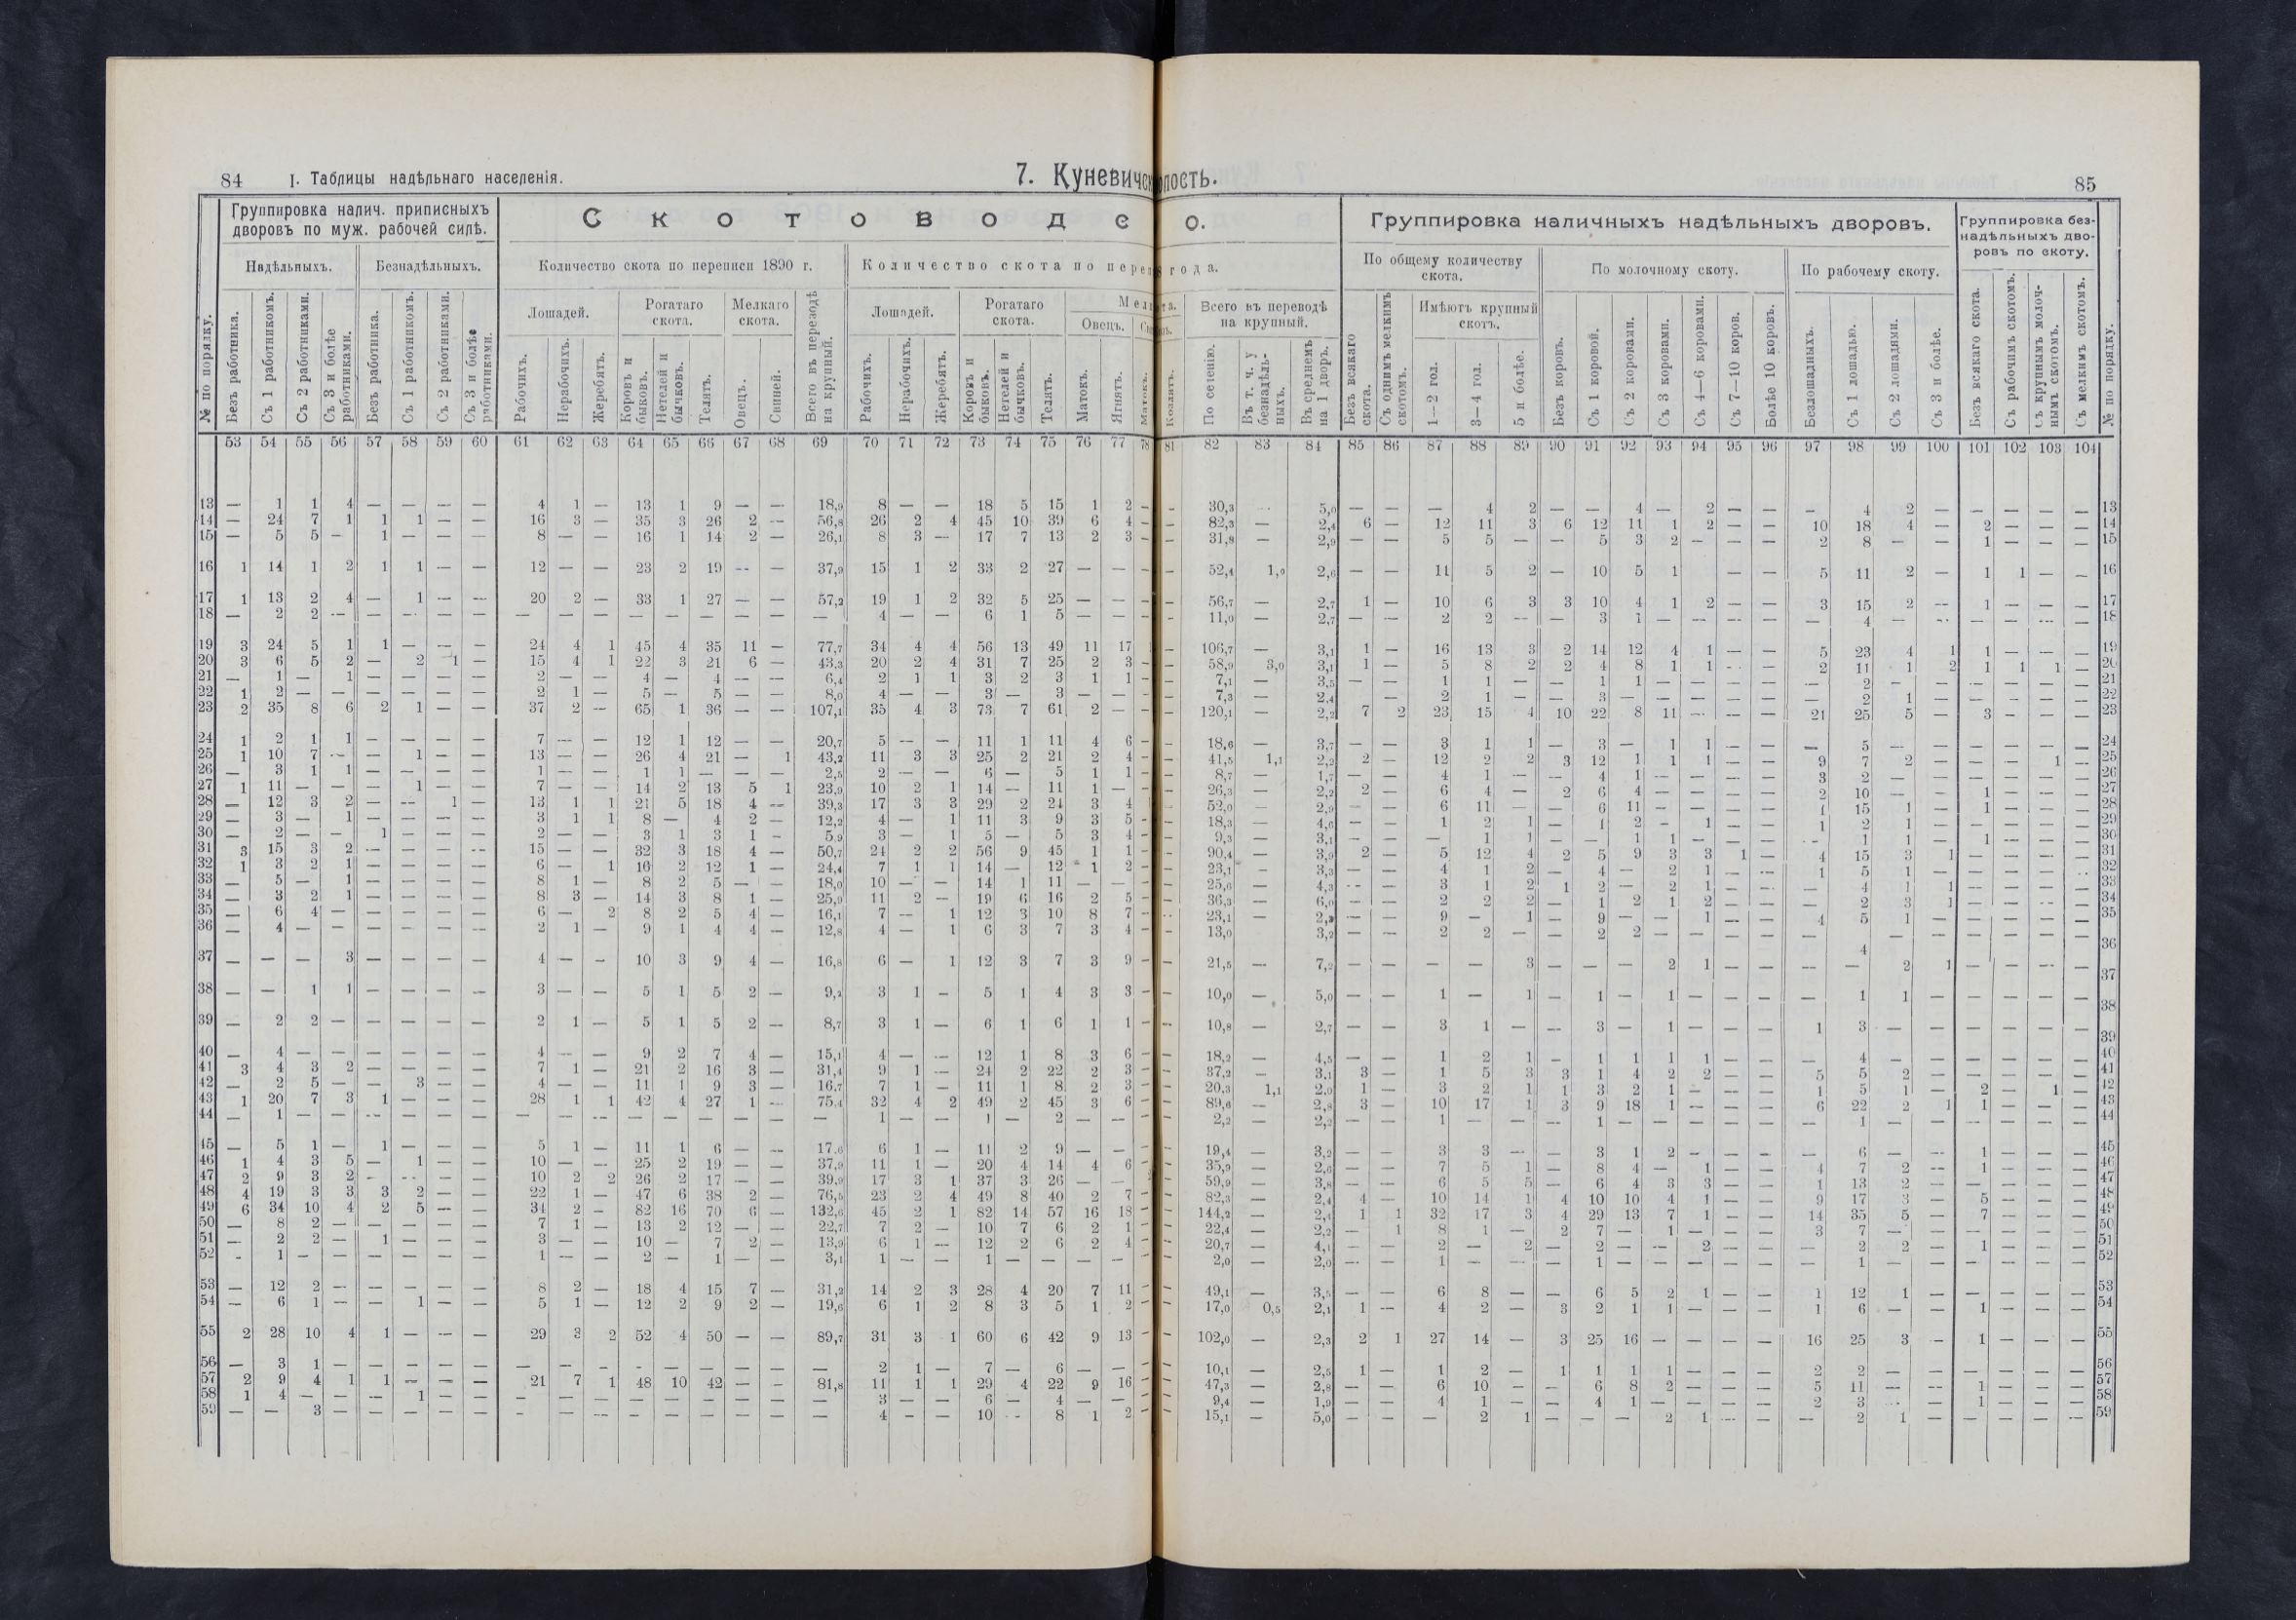 84 I. Таблицы надѣльнаго населенія. 7. Куневичск
олость. 85
Группировка налич. приписныхъ дворовъ по муж. рабочей силѣ.
Скотоводс
о.
Группировка наличныхъ надѣльныхъ дворовъ.
Группировка безнадѣльныхъ дворовъ по скоту.
Надѣльныхъ. Безнадѣльныхъ. Количество скота по переписи 1890 г. Количество скота по пере
года. По общему количеству скота. По молочному скоту. По рабочему скоту.
Лошадей. Рогатаго скота. Мелкаго скота. Лошадей. Рогатаго скота. Мел
та. Всего въ переводѣ на крупный. Имѣютъ крупный скотъ.
Овецъ.
№ по порядку. Безъ работника. Съ 1 работникомъ. Съ 2 работниками. Съ 3 и болѣе работниками. Безъ работника. Съ 1 работникомъ. Съ 2 работниками. Съ 3 и болѣе работниками. Рабочихъ. Нерабочихъ. Жеребятъ. Коровъ и быковъ. Нетелей и бычковъ. Телятъ. Овецъ. Свиней. Всего въ переводѣ на крупный. Рабочихъ. Нерабочихъ. Жеребятъ. Коровъ и быковъ. Нетелей и бычковъ. Телятъ. Матокъ. Ягнятъ. Матокъ.
Козлятъ. По селенію. Въ т. ч. у безнадѣльныхъ. Въ среднемъ на 1 дворъ. Безъ всякаго скота. Съ однимъ мелкимъ скотомъ. 1—2 гол. 3—4 гол. 5 и болѣе. Безъ коровъ. Съ 1 коровой. Съ 2 коровами. Съ 3 коровами. Съ 4—6 коровами. Съ 7—10 коров. Болѣе 10 коровъ. Безлошадныхъ. Съ 1 лошадью. Съ 2 лошадями. Съ 3 и болѣе. Безъ всякаго скота. Съ рабочимъ скотомъ. Съ крупнымъ молочнымъ скотомъ. Съ мелкимъ скотомъ. № по порядку.
53 54 55 56 57 58 59 60 61 62 63 64 65 66 67 68 69 70 71 72 73 74 75 76 77 78
81 82 83 84 85 86 87 88 89 90 91 92 93 94 95 96 97 98 99 100 101 102 103 104
13 — 1 1 4 — — — — 4 1 — 13 1 9 — — 18,9 8 — — 18 5 15 1 2 — — 30,3 5,0 — — — 4 2 — — 4 — 2 — — — 4 2 — — — — — 13
14 — 24 7 1 1 1 — — 16 3 — 35 3 26 2 — 56,8 26 2 4 45 10 39 6 4 — — 82,3 — 2,4 6 — 12 11 3 6 12 11 1 2 — — 10 18 4 — 2 — — — 14
15 — 5 5 — 1 — — — 8 — — 16 1 14 2 — 26,1 8 3 — 17 7 13 2 3 — — 31,8 — 2,9 — — 5 5 — — 5 3 2 — — — 2 8 — — 1 — — — 15
16 1 14 1 2 1 1 — — 12 — — 23 2 19 — — 37,9 15 1 2 33 2 27 — — — — 52,4 1,0 2,6 — — 11 5 2 — 10 5 1 — — 5 11 2 — 1 1 — — 16
17 1 13 2 4 — 1 — — 20 2 — 33 1 27 — — 57,2 19 1 2 32 5 25 — — — — 56,7 — 2,7 1 — 10 6 3 3 10 4 1 2 — — 3 15 2 — 1 — — — 17
18 — 2 2 — — — — — — — — — — — — — — 4 — — 6 1 5 — — — — 11,0 — 2,7 — — 2 2 — — 3 1 — — — — — 4 — — — — — — 18
19 3 24 5 1 1 — — — 24 4 1 45 4 35 11 — 77,7 34 4 4 56 13 49 11 17 — 106,7 — 3,1 1 — 16 13 3 2 14 12 4 1 — — 5 23 4 1 1 — — — 19
20 3 6 5 2 — 2 1 — 15 4 1 22 3 21 6 — 43,3 20 2 4 31 7 25 2 3 — — 58,9 3,0 3,1 1 — 5 8 2 2 4 8 1 1 — — 2 11 1 2 1 1 1 — 20
21 — 1 — 1 — — — — 2 — — 4 — 4 — — 6,4 2 1 1 3 2 3 1 1 — — 7,1 — 3,5 — — 1 1 — — 1 1 — — — — — 2 — — — — — — 21
22 1 2 — — — — — — 2 1 — 5 — 5 — — 8,0 4 — — 3 — 3 — — — — 7,3 — 2,4 — — 2 1 — — 3 — — — — — — 2 1 — — — — — 22
23 2 35 8 6 2 1 — — 37 2 — 65 1 36 — — 107,1 35 4 3 73 7 61 2 — — — 120,1 — 2,2 7 2 23 15 4 10 22 8 11 — — — 21 25 5 — 3 — — — 23
24 1 2 1 1 — — — — 7 — — 12 1 12 — — 20,7 5 — — 11 1 11 4 6 — — 18,6 — 3,7 — — 3 1 1 — 3 — 1 1 — — — 5 — — — — — — 24
25 1 10 7 — — 1 — — 13 — — 26 4 21 — 1 43,2 11 3 3 25 2 21 2 4 — — 41,5 1,1 2,2 2 — 12 2 2 3 12 1 1 1 — — 9 7 2 — — — 1 — 25
26 — 3 1 1 — — — — 1 — — 1 1 — — — 2,5 2 — — 6 — 5 1 1 — — 8,7 — 1,7 — — 4 1 — — 4 1 — — — — 3 2 — — — — — — 26
27 1 11 — — — 1 — — 7 — — 14 2 13 5 1 23,9 10 2 1 14 — 11 1 — — — 26,3 — 2,2 2 — 6 4 — 2 6 4 — — — — 2 10 — — 1 — — — 27
28 — 12 3 2 — — 1 — 13 1 1 21 5 18 4 — 39,3 17 3 3 29 2 24 3 4 — 52,0 — 2,9 — — 6 11 — — 6 11 — — — — 1 15 1 — 1 — — — 28
29 — 3 — 1 — — — — 3 1 1 8 — 4 2 — 12,2 4 — 1 11 3 9 3 5 — — 18,3 — 4,6 — — 1 2 1 — 1 2 — 1 — — 1 2 1 — — — — — 29
30 — 2 — — 1 — — — 2 — — 3 1 3 1 — 5,9 3 — 1 5 — 5 3 4 — — 9,3 — 3,1 — — — 1 1 — — 1 1 — — — — 1 1 — 1 — — — 30
31 3 15 3 2 — — — — 15 — — 32 3 18 4 — 50,7 24 2 2 56 9 45 1 1 — — 90,4 — 3,9 2 — 5 12 4 2 5 9 3 3 1 — 4 15 3 1 — — — — 31
32 1 3 2 1 — — — — 6 — 1 16 2 12 1 — 24,4 7 1 1 14 — 12 1 2 — — 23,1 — 3,3 — — 4 1 2 — 4 — 2 1 — — 1 5 1 — — — — — 32
33 — 5 — 1 — — — — 8 1 — 8 2 5 — — 18,0 10 — — 14 1 11 — — — — 25,6 — 4,3 — — 3 1 2 1 2 — 2 1 — — — 4 1 1 — — — — 33
34 — 3 2 1 — — — — 8 3 — 14 3 8 1 — 25,9 11 2 — 19 6 16 2 5 — — 36,3 — 6,0 — — 2 2 2 — 1 2 1 2 — — — 2 3 1 — — — — 34
35 — 6 4 — — — — — 6 — 2 8 2 5 4 — 16,1 7 — 1 12 3 10 8 7 — — 23,1 — — — 9 — 1 — 9 — — 1 — — 4 5 1 — — — — — 35
36 — 4 — — — — — — 2 1 — 9 1 4 4 — 12,8 4 — 1 6 3 7 3 4 — — 13,0 — 3,2 — — 2 2 — — 2 2 — — — — — 4 — — — — — — 36
37 — — — 3 — — — — 4 — — 10 3 9 4 — 16,8 6 — 1 12 3 7 3 9 — — 21,5 — 7,2 — — — — 3 — — — 2 1 — — — — 2 1 — — — — 37
38 — — 1 1 — — — — 3 — — 5 1 5 2 — 9,2 3 1 — 5 1 4 3 3 — — 10,0 — 5,0 — — 1 — 1 — 1 — 1 — — — — 1 1 — — — — — 38
39 — 2 2 — — — — — 2 1 — 5 1 5 2 — 8,7 3 1 — 6 1 6 1 1 — — 10,8 — 2,7 — — 3 1 — — 3 — 1 — — — 1 3 — — — — — — 39
40 — 4 — — — — — — 4 — — 9 2 7 4 — 15,1 4 — — 12 1 8 3 6 — — 18,2 — 4,5 — — 1 2 1 — 1 1 1 1 — — — 4 — — — — — — 40
41 3 4 3 2 — — — — 7 1 — 21 2 16 3 — 31,4 9 1 — 24 2 22 2 3 — — 37,2 — 3,1 3 — 1 5 3 3 1 4 2 2 — — 5 5 2 — — — — — 41
42 — 2 5 — — 3 — — 4 — — 11 1 9 3 — 16,7 7 1 — 11 1 8 2 3 — — 20,3 1,1 2,0 1 — 3 2 1 1 3 2 1 — — — 1 5 1 — 2 — 1 — 42
43 1 20 7 3 1 — — — 28 1 1 42 4 27 1 — 75,4 32 4 2 49 2 45 3 6 — — 89,6 — 2,8 3 — 10 17 1 3 9 18 1 — — — 6 22 2 1 1 — — — 43
44 — 1 — — — — — — — — — — — — — — — 1 — — 1 — 2 — — — — 2,2 — 2,2 — — 1 — — — 1 — — — — — — 1 — — — — — — 44
45 — 5 1 — 1 — — — 5 1 — 11 1 6 — — 17,6 6 1 — 11 2 9 — — — — 19,4 — 3,2 — — 3 3 — — 3 1 2 — — — — 6 — — 1 — — — 45
46 1 4 3 5 — 1 — — 10 — — 25 2 19 — — 37,9 11 1 — 20 4 14 4 6 — — 35,9 — 2,6 — — 7 5 1 — 8 4 — 1 — — 4 7 2 — 1 — — — 46
47 2 9 3 2 — — — — 10 2 2 26 2 17 — — 39,9 17 3 1 37 3 26 — — — 59,9 — 3,8 — — 6 5 5 — 6 4 3 3 — — 1 13 2 — — — — — 47
48 4 19 3 3 3 2 — — 22 1 — 47 6 38 2 — 76,5 23 2 4 49 8 40 2 7 — — 82,3 — 2,4 4 — 10 14 1 4 10 10 4 1 — — 9 17 3 — 5 — — — 48
49 6 34 10 4 2 5 — — 34 2 — 82 16 70 6 — 132,6 45 2 1 82 14 57 16 18 — — 144,2 — 2,4 1 1 32 17 3 4 29 13 7 1 — — 14 35 5 — 7 — — — 49
50 — 8 2 — — — — — 7 1 — 13 2 12 — — 22,7 7 2 — 10 7 6 2 1 — — 22,4 — 2,2 — 1 8 1 — 2 7 — 1 — — — 3 7 — — — — — — 50
51 — 2 2 — 1 — — — 3 — — 10 — 7 2 — 13,9 6 1 — 12 2 6 2 4 — — 20,7 — 4,1 — — 2 — 2 — 2 — — 2 — — — 2 2 — 1 — — — 51
52 — 1 — — — — — — 1 — — 2 — 1 — — 3,1 1 — — 1 — — — — — — 2,0 — 2,0 — — 1 — — — 1 — — — — — — 1 — — — — — — 52
53 — 12 2 — — — — — 8 2 — 18 4 15 7 — 31,2 14 2 3 28 4 20 7 11 — — 49,1 — 3,5 — — 6 8 — — 6 5 2 1 — — 1 12 1 — — — — — 53
54 — 6 1 — — 1 — — 5 1 — 12 2 9 2 — 19,6 6 1 2 8 3 5 1 2 — — 17,0 0,5 2,1 1 — 4 2 — 3 2 1 1 — — — 1 6 — — 1 — — — 54
55 2 28 10 4 1 — — — 29 3 2 52 4 50 — — 89,7 31 3 1 60 6 42 9 13 — — 102,0 — 2,3 2 1 27 14 — 3 25 16 — — — — 16 25 3 — 1 — — — 55
56 — 3 1 — — — — — — — — — — — — — — 2 1 — 7 — 6 — — — — 10,1 — 2,5 1 — 1 2 — 1 1 1 1 — — — 2 2 — — — — — — 56
57 2 9 4 1 1 — — — 21 7 1 48 10 42 — — 81,8 11 1 1 29 4 22 9 16 — — 47,3 — 2,8 — — 6 10 — — 6 8 2 — — — 5 11 — — 1 — — — 57
58 1 4 — — — 1 — — — — — — — — — — — 3 — — 6 — 4 — — — — 9,4 — 1,9 — — 4 1 — — 4 1 — — — — 2 3 — — 1 — — — 58
59 — — 3 — — — — — — — — — — — — — — 4 — — 10 — 8 1 2 — — 15,1 — 5,0 — — — 2 1 — — — 2 1 — — — 2 1 — — — — — 59